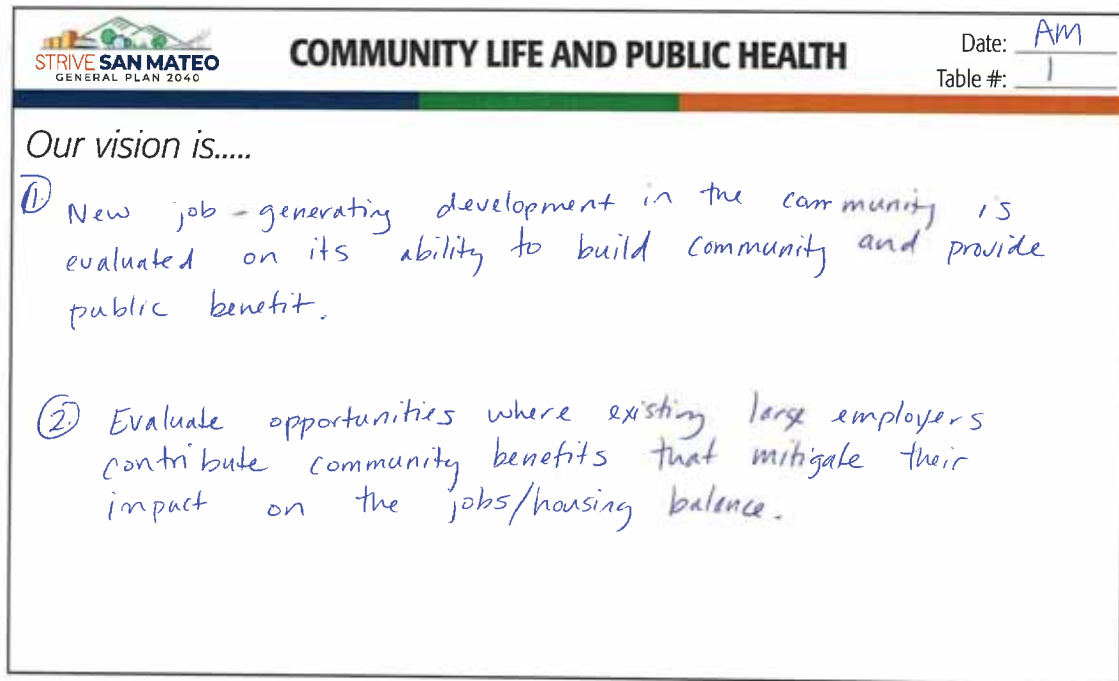 STRIVE SAN MATEO
GENERAL PLAN 2040
COMMUNITY LIFE AND PUBLIC HEALTH
Date: AM
Table #: 1
Our vision is.....
1. New job-generating development in the community is
evaluated on its ability to build community and provide
public benefit.
2. Evaluate opportunities where existing large employers
contribute community benefits that mitigate their
impact on the jobs/housing balance.